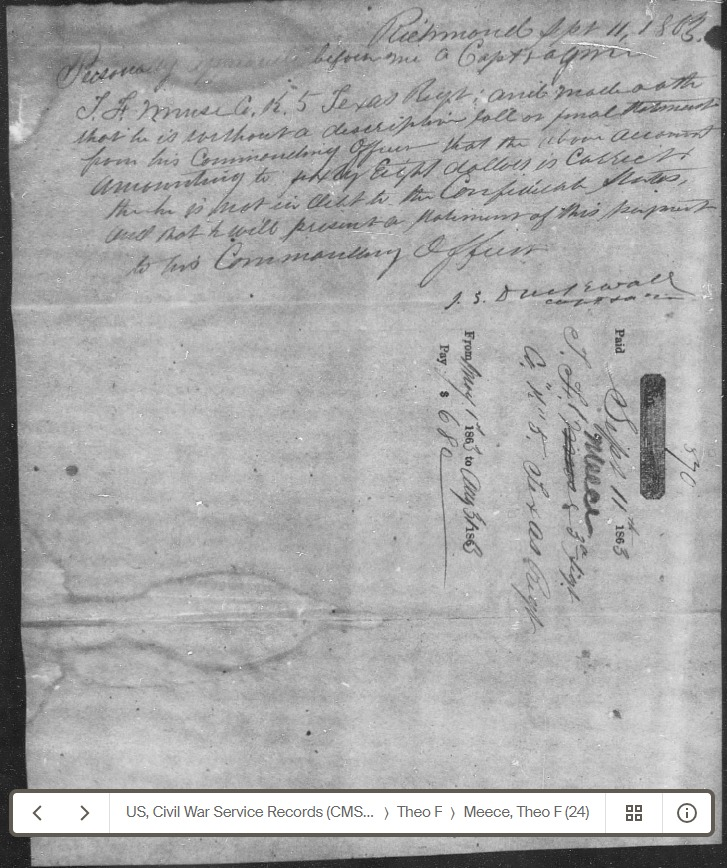 Richmond Sept 11, 1863.
Personally appeared before me a Capt & AQM
T. F. Meuse Co. K. 5 Texas Regt; and made oath
that he is without a descriptive roll or final statement
from his Commanding Officer that the above account
amounting to sixty Eight dollars is Correct &
tha he is not in debt to the Confederate States,
and that he will present a statement of this payment
to his Commanding Officer
370
Paid Sept 11th 1863
Meece
T. F. 3d Sigt
Co "K" 5. Texas Regt
From May 1st 1863 to Aug 31 1863
Pay $ 68
US, Civil War Service Records (CMS... 〉 Theo F 〉 Meece, Theo F (24)